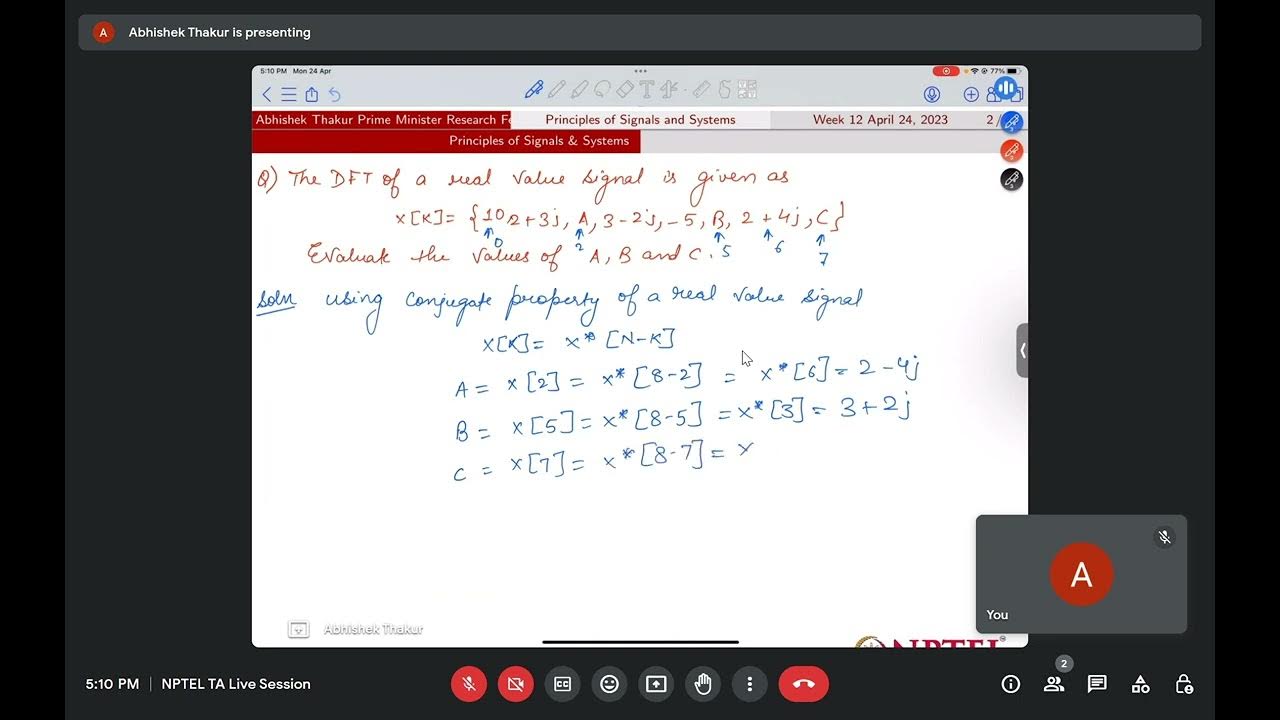 A Abhishek Thakur is presenting
5:10 PM Mon 24 Apr 77%
Abhishek Thakur Prime Minister Research Fe Principles of Signals and Systems Week 12 April 24, 2023 2/
Principles of Signals & Systems
Q) The DFT of a real value signal is given as
x[K] = {10, 2+3j, A, 3-2j, -5, B, 2+4j, C}
0 2 5 6 7
Evaluate the values of A, B and C.
Soln using conjugate property of a real value signal
x[K] = x* [N-K]
A = x[2] = x* [8-2] = x* [6] = 2-4j
B = x[5] = x* [8-5] = x* [3] = 3+2j
C = x[7] = x* [8-7] = x
A
You
Abhishek Thakur
NPTEL
2
5:10 PM | NPTEL TA Live Session